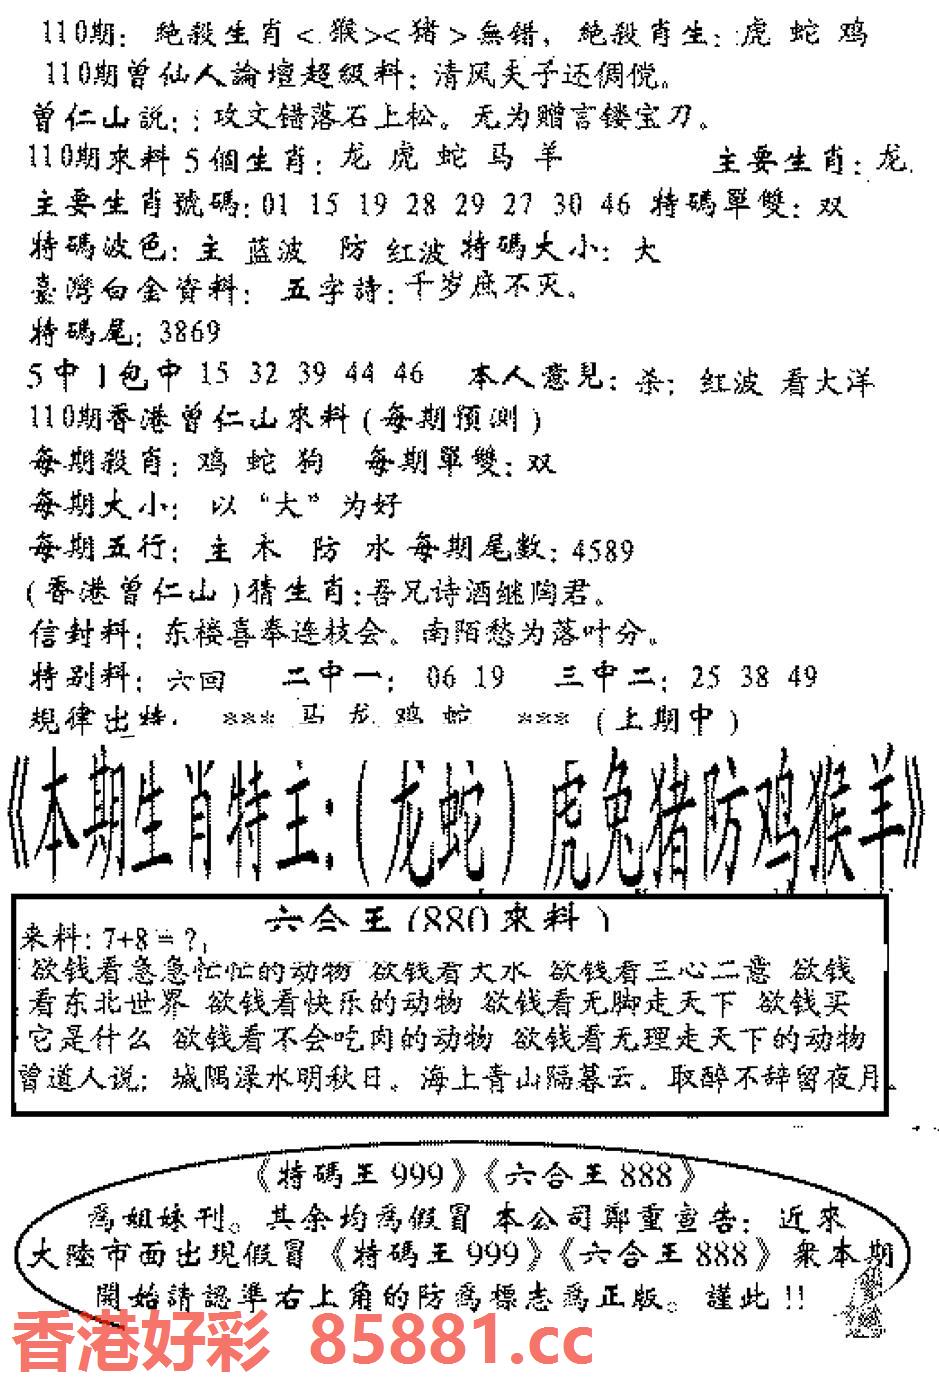 110期：絶殺生肖<.猴><豬>無错，絶殺肖生：虎 蛇 鸡
110期曾仙人論壇超級料：清风天子还倜傥。
曾仁山説：；攻文错落石上松。无为赠言镂宝刀。
110期來料 5 個生肖：龙 虎 蛇 马 羊 主要生肖：龙.
主要生肖號碼：01 15 19 28 29 27 30 46 特碼單雙：双
特碼波色：主 蓝波 防 红波 特碼大小：大
臺灣白金資料： 五字詩：千岁庶不灭。
特碼尾：3869
5 中 1 包中 15 32 39 44 46 本人意見：杀；红波 看大洋
110期香港曾仁山來料（每期預測）
每期殺肖：鸡 蛇 狗 每期單雙：双
每期大小： 以“大”为好
每期五行：主 木 防 水 每期尾数：4589
（香港曾仁山）猜生肖：吾兄诗酒继陶君。
信封料：东楼喜奉连枝会。南陌愁为落叶分。
特别料：六回 二中一：06 19 三中二：25 38 49
規律出特： *** 马 龙 鸡 蛇 *** （上期中）
《本期生肖特主：（龙蛇）虎兔猪防鸡猴羊》
六合王（880來料）
来料：7+8＝？
欲钱看急急忙忙的动物 欲钱看大水 欲钱看三心二意 欲钱
看东北世界 欲钱看快乐的动物 欲钱看无脚走天下 欲钱买
它是什么 欲钱看不会吃肉的动物 欲钱看无理走天下的动物
曾道人说：城隅渌水明秋日。海上青山隔暮云。取醉不辞留夜月。
《特碼王 999》《六合王 888》
爲姐妹刊。其余均爲假冒 本公司鄭重宣告：近來
大陸市面出現假冒《特碼王 999》《六合王 888》衆本期
開始請認準右上角的防爲標志爲正版。謹此 !!
香港好彩 85881.cc